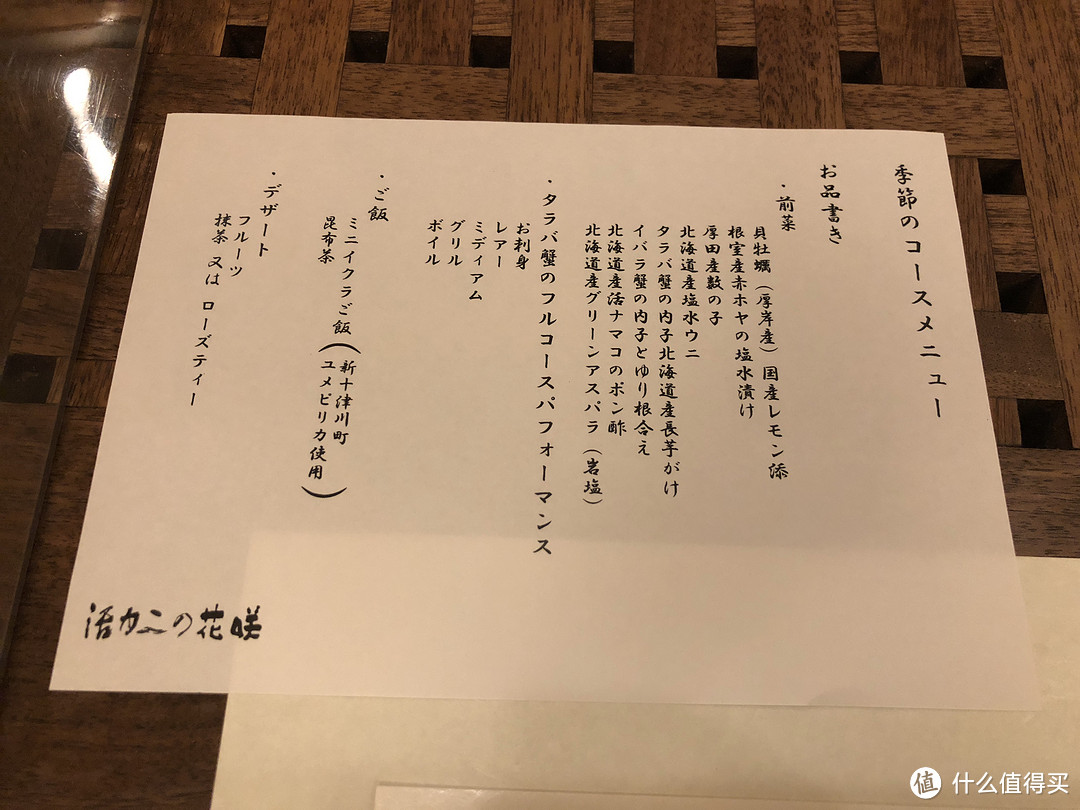 季節のコースメニュー
お品書き
・前菜
貝牡蠣（厚岸産）国産レモン添
根室産赤ホヤの塩水漬け
厚田産数の子
北海道産塩水ウニ
タラバ蟹の内子北海道産長芋がけ
イバラ蟹の内子とゆり根合え
北海道産活ナマコのポン酢
北海道産グリーンアスパラ（岩塩）
・タラバ蟹のフルコースパフォーマンス
お刺身
レアー
ミディアム
グリル
ボイル
・ご飯
ミニイクラご飯（新十津川町
ユメピリカ使用）
昆布茶
・デザート
フルーツ
抹茶 又は ローズティー
活カニの花咲
值 什么值得买